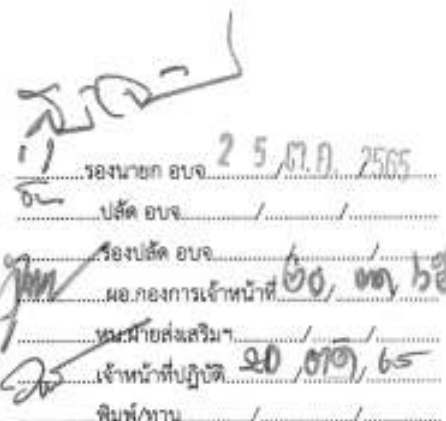 รองนายก อบจ. 25 /ต.ค. /2565
ปลัด อบจ. / /
รองปลัด อบจ. / /
ผอ.กองการเจ้าหน้าที่ ๒๐/ ๖๕
หน.ฝ่ายส่งเสริมฯ / /
เจ้าหน้าที่ปฏิบัติ 20 /ตค/ 65
พิมพ์/ทาน / /